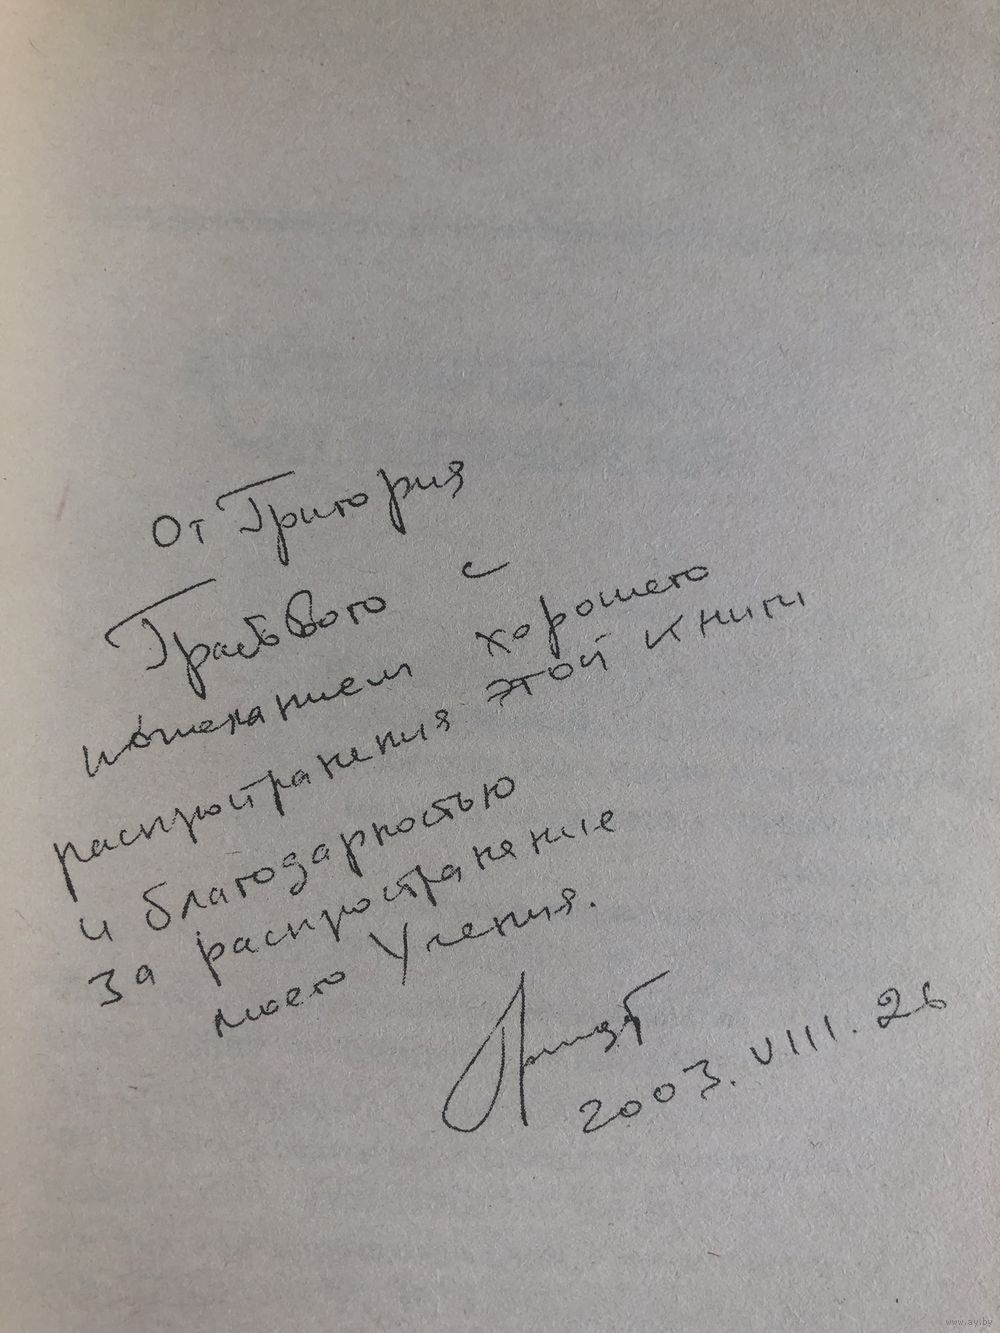 От Григория
Грабового с
пожеланием хорошего
распространения этой книги
и благодарностью
за распространение
моего Учения.
2003. VIII. 26
www.ay.by